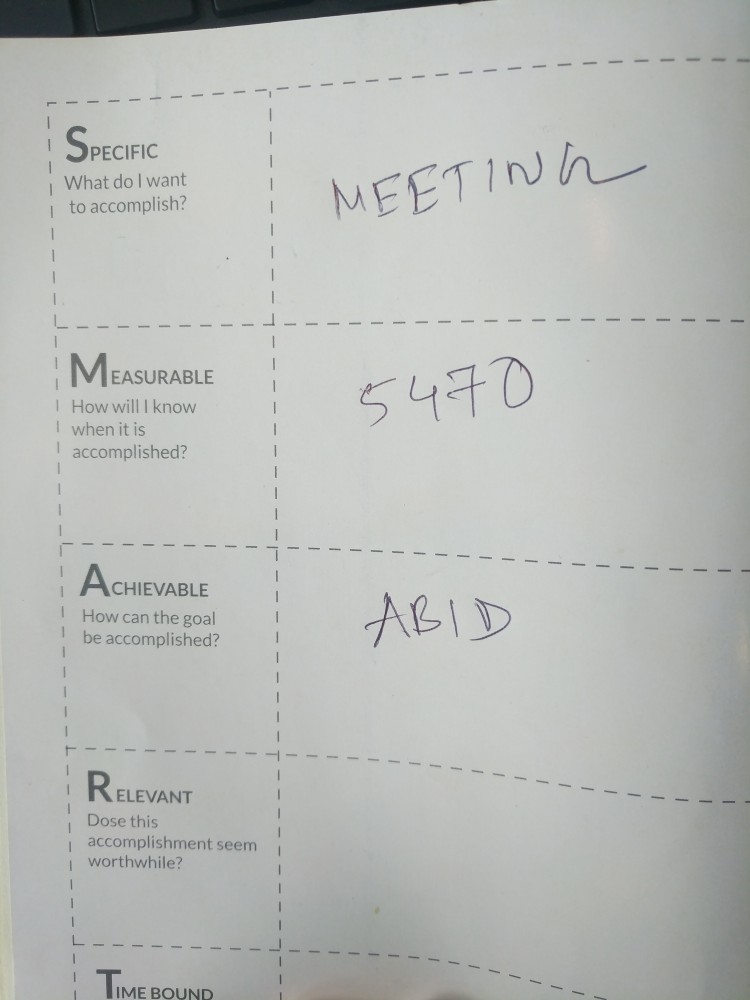 SPECIFIC
What do I want
to accomplish?
MEETING
MEASURABLE
How will I know
when it is
accomplished?
5470
ACHIEVABLE
How can the goal
be accomplished?
ABID
RELEVANT
Dose this
accomplishment seem
worthwhile?
TIME BOUND